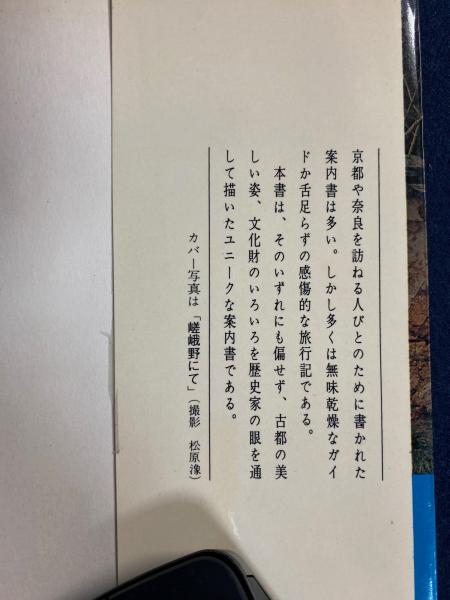 京都や奈良を訪ねる人びとのために書かれた
案内書は多い。しかし多くは無味乾燥なガイ
ドか舌足らずの感傷的な旅行記である。
本書は、そのいずれにも偏せず、古都の美
しい姿、文化財のいろいろを歴史家の眼を通
して描いたユニークな案内書である。
カバー写真は「嵯峨野にて」（撮影 松原潒）